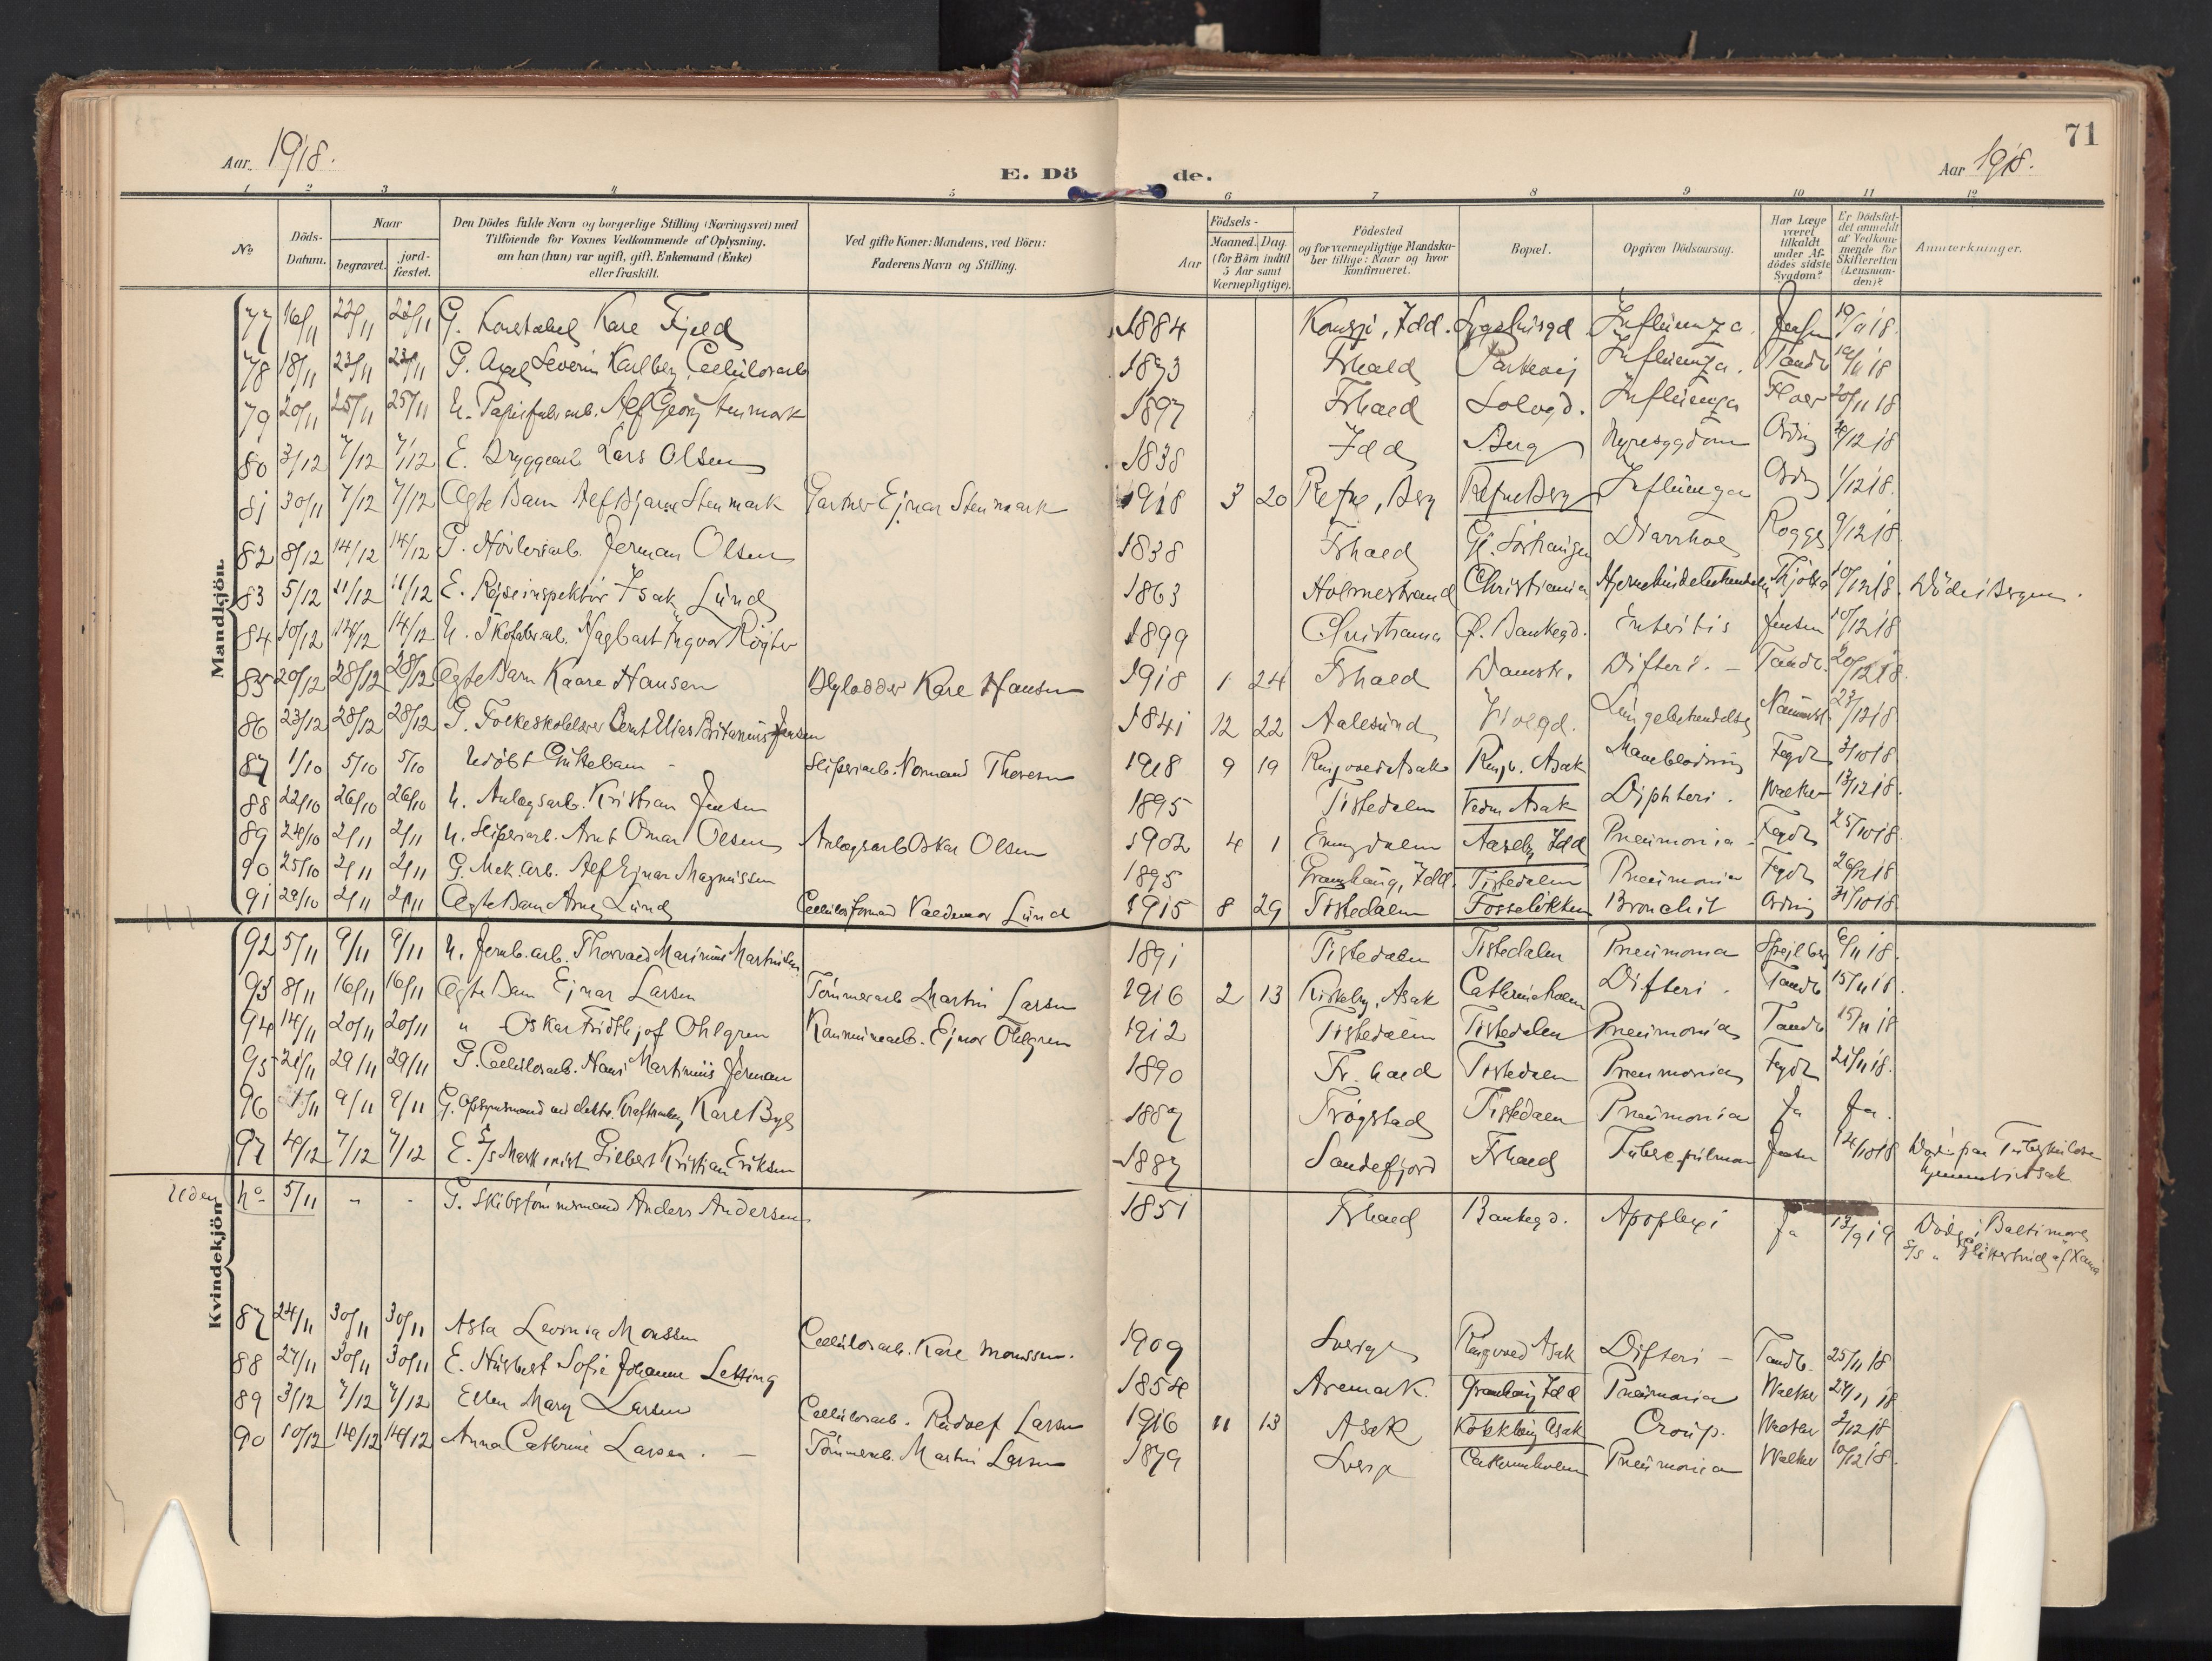 71
Aar 1918.
E. Dö de.
Aar 1918.
1 2 3 4 5 6 7 8 9 10 11 12
No
Döds-Datum.
Naar
begravet.
jord-fæstet.
Den Dödes fulde Navn og borgerlige Stilling (Næringsvei) med
Tilföiende for Voxnes Vedkommende af Oplysning,
om han (hun) var ugift, gift, Enkemand (Enke)
eller fraskilt.
Ved gifte Koner: Mandens, ved Börn:
Faderens Navn og Stilling.
Födsels-
Aar
Maaned. Dag.
(for Børn indtil
5 Aar samt
Værnepligtige).
Födested
og for værnepligtige Mandska-
ber tillige: Naar og hvor
konfirmeret.
Bopæl.
Opgiven Dödsaarsag.
Har Læge
været
tilkaldt
under Af-
dødes sidste
Sygdom?
Er Dödsfal-
det anmeldt
af Vedkom-
mende for
Skifteretten
(Lensman-
den)?
Anmærkninger.
Mandkjön.
77 16/11 22/11 22/11 G. Konstabel Karl Fjeld 1884 Idd. Sygehusgd Influenza. Jensen 19/11 18.
78 18/11 23/11 23/11 G. Axel Severin Karlberg, Cellulosarb 1873 Frhald Parkvej Influenza. Tandb 19/11 18
79 20/11 25/11 25/11 U. Papirfabrarb. Alf Georg 1897 Frhald Influenza 20/11 18
80 3/12 7/12 7/12 E. Bryggearb Lars Olsen 1838 Idd Berg Nyresygdom Ording 4/12 18
81 30/11 7/12 7/12 Ægte Barn Alf Bjarne Stenmark Gartner Ejnar Stenmark 1918 3 20 Refne, Berg Refne Berg Influenza 1/12 18.
82 8/12 14/12 14/12 G. Høvleriarb. Jerman Olsen 1838 Frhald Diarrhoe Rogge 9/12 18
83 5/12 11/12 11/12 E. Rejseinspektör Isak Lund 1863 Holmestrand Christiania 10/12 18. Döde i Bergen.
84 10/12 14/12 14/12 U. Skofabrarb. Hagbart Ingvar 1899 Christiania Ø. Bankegd. Enteritis Jensen 10/12 18
85 20/12 28/12 28/12 Ægte Barn Kaare Hansen Karl Hansen 1918 1 24 Frhald Damstr. Difteri. - Tandb. 20/12 18.
86 23/12 28/12 28/12 G. Folkeskolelærer Bernt Elias Jensen 1841 12 22 Aalesund Lungebetændelse 23/12 18
87 1/10 5/10 5/10 Udöbt Guttebarn - Sliperiarb. Normand Thoresen 1918 9 19 Ringv. Asak Maveblødning Fegth 3/10 18
88 22/10 26/10 26/10 U. Anlægsarb. Kristian Jensen 1895 Tistedalen Veden Asak Diphteri. Walker 13/12 18.
89 24/10 2/11 2/11 U. Sliperiarb. Arnt Omar Olsen Anlægsarb Oskar Olsen 1902 4 1 Enningdalen Idd Pneumonia - Fegth 25/10 18.
90 25/10 2/11 2/11 G. Mek. arb. Alf Ejnar Magnussen 1895 Granhaug, Idd. Tistedalen Pneumonia Fegth 26/12 18
91 29/10 2/11 2/11 Ægte Barn Arne Lund Cellulosformand Valdemar Lund 1915 8 29 Tistedalen Fosseløkken Bronchit Ording 31/10 18
92 5/11 9/11 9/11 U. Jernb. arb. Thorvald Marinius Martinsen 1891 Tistedalen Tistedalen Pneumonia 6/11 18.
93 8/11 16/11 16/11 Ægte Barn Ejnar Larsen Tömmerarb Martin Larsen 1916 2 13 Kirkeby, Asak Cathrineholm Difteri. Tandb 15/11 18.
94 14/11 20/11 20/11 " Oskar Fridthjof Ohlgren Ejnar Ohlgren 1912 Tistedalen Tistedalen Pneumonia Tandb 15/11 18
95 21/11 29/11 29/11 G. Cellulosarb. Hans Martinius Jerman 1890 Fr.hald Tistedalen Pneumonia Fegth 21/11 18.
96 1/11 9/11 9/11 G. Opsynsmand ved elektr. Kraftanlæg Karl 1887 Trøgstad Tistedalen Pneumonia Ja Ja.
97 4/12 7/12 7/12 E. S/s Maskinist Gilbert Kristian Eriksen 1887 Sandefjord Frhald Tuberc. pulmon Jensen 14/10 18 Døde paa Tuberkulose
Uden No 5/11 " - G. Skibstömmermand Anders Andersen 1851 Frhald Bankegd. Apoplexi Ja 13/9 19 Döde i Baltimore
Kvindekjön
87 24/11 30/11 30/11 Asta Levinia Monssen Cellulosarb. Karl Monssen. 1909 Sverige Ringvoed Asak Difteri - Tandb. 25/11 18
88 27/11 30/11 30/11 E. Husbest Sofie Johanne Letting 1854 Aremark. Granhaug Idd Pneumonia Walker 27/11 18
89 3/12 7/12 7/12 Ellen Mary Larsen Cellulosarb. Rudolf Larsen 1916 11 13 Asak Asak Croup. Walker 3/12 18
90 10/12 14/12 14/12 Anna Cathrine Larsen. - Tömmerarb. Martin Larsen 1879 Sverge Cathrineholm Pneumonia Walker 10/12 18.